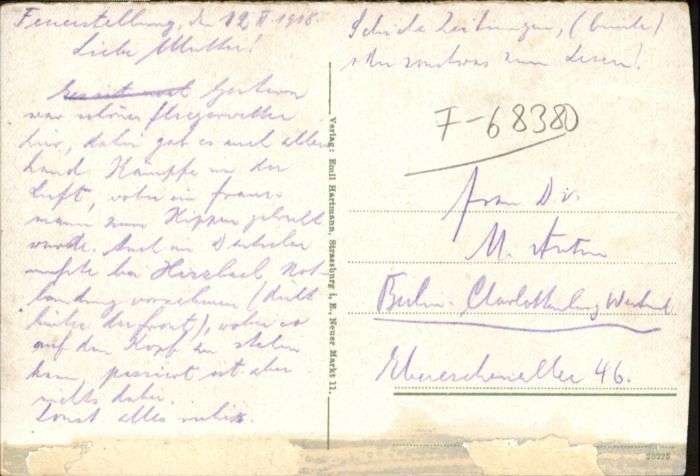 Feuerstellung, den 12 II 1918.
Liebe Mutter!
Gestern
war schönes Fliegerwetter
hier, dabei gab es auch aller
hand Kämpfe in der
Luft, wobei ein Franz-
mann zum Kippen gebracht
wurde. Auch ein Deutscher
mußte bei Hirzbach Not-
landung vornehmen (dicht
hinter der Front), wobei es
auf den Kopf zu stehen
kam, passiert ist aber
nichts dabei.
Sonst alles ruhig.
Schicke Zeitungen, (bunte)
oder sonstwas zum Lesen!
F-68380
Verlag: Emil Hartmann, Strassburg i. E., Neuer Markt 11.
Frau Dir.
M.
Berlin-Charlottenburg Westend
Ebereschenallee 46.